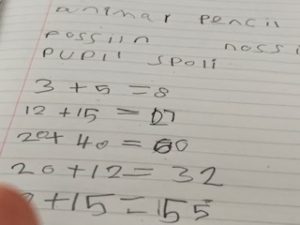 animar pencil
possiin nossi
PUPil spoil
3 + 5 = 8
12 + 15 = 27
20+ 40 = 60
20 + 12 = 32
+ 15 = 155